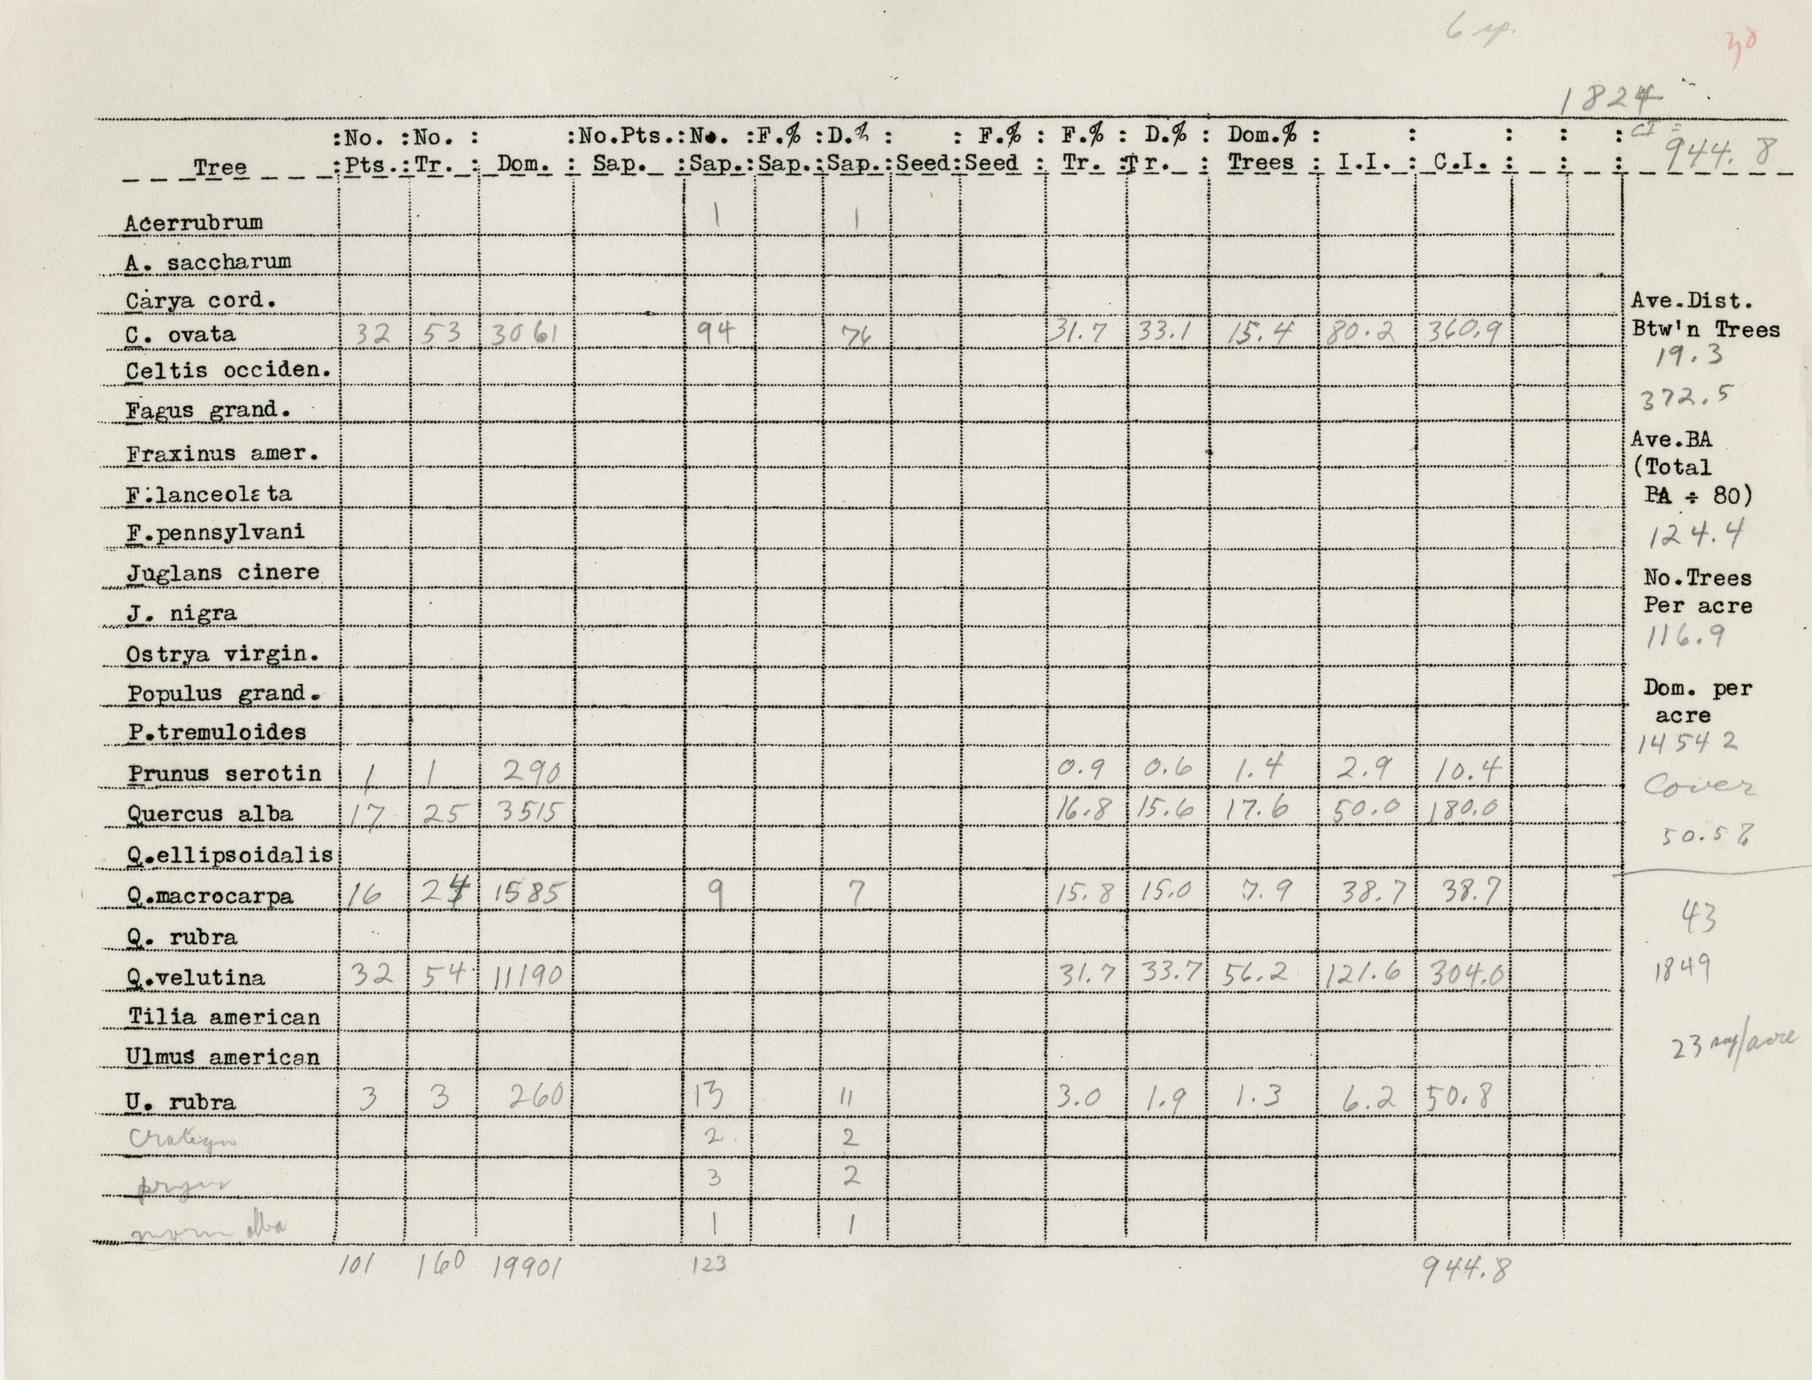 6 sp.
30
1824
:No. :No. : :No.Pts.:No. :F.% :D.% : : F.% : F.% : D.% : Dom.% : : : : : CI =
Tree :Pts.:Tr. : Dom. : Sap. :Sap.:Sap.:Sap.:Seed:Seed : Tr. :Tr. : Trees : I.I. : C.I. : : : 944.8
Acerrubrum 1 1
A. saccharum
Carya cord.
Ave.Dist.
C. ovata 32 53 3061 94 76 31.7 33.1 15.4 80.2 360.9
Btw'n Trees
19.3
Celtis occiden.
372.5
Fagus grand.
Ave.BA
Fraxinus amer.
(Total
F.lanceolata
BA ÷ 80)
F.pennsylvani
124.4
Juglans cinere
No.Trees
Per acre
J. nigra
116.9
Ostrya virgin.
Populus grand.
Dom. per
acre
P.tremuloides
14542
Prunus serotin 1 1 290 0.9 0.6 1.4 2.9 10.4
Cover
Quercus alba 17 25 3515 16.8 15.6 17.6 50.0 180.0
50.58
Q.ellipsoidalis
Q.macrocarpa 16 24 1585 9 7 15.8 15.0 7.9 38.7 38.7
43
Q. rubra
Q.velutina 32 54 11190 31.7 33.7 56.2 121.6 304.0
1849
Tilia american
Ulmus american
23 /acre
U. rubra 3 3 260 13 11 3.0 1.9 1.3 6.2 50.8
2 2
3 2
alba 1 1
101 160 19901 123 944.8